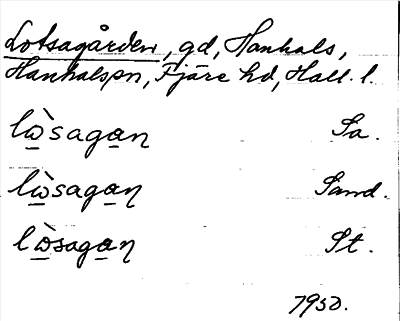 Lotsagården, gd, Hanhals,
Hanhalspn, Fjäre hd, Hall. l.
lὼ̲saga̲n Sa.
lὼ̲saga̲ƞ Sand.
lὼ̲saga̲ƞ St.
1950.